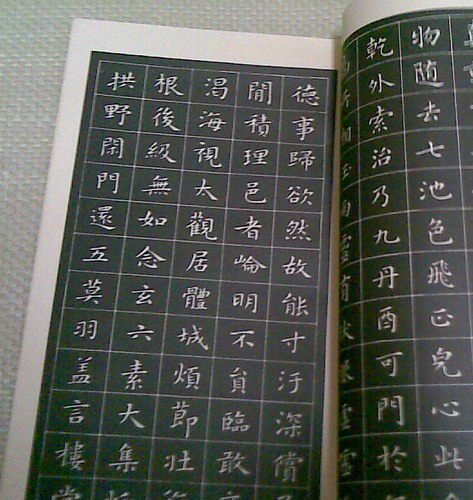 物随去七池色飛正兒心此
乾外索治乃九丹酉可門於
德事歸欲然故能寸汙深償
閒積理邑者崘明不貟臨敢
渴海視太觀居體城煩節壯
根後級無如念玄六素大集
拱野閑門還五莫羽盖言樓